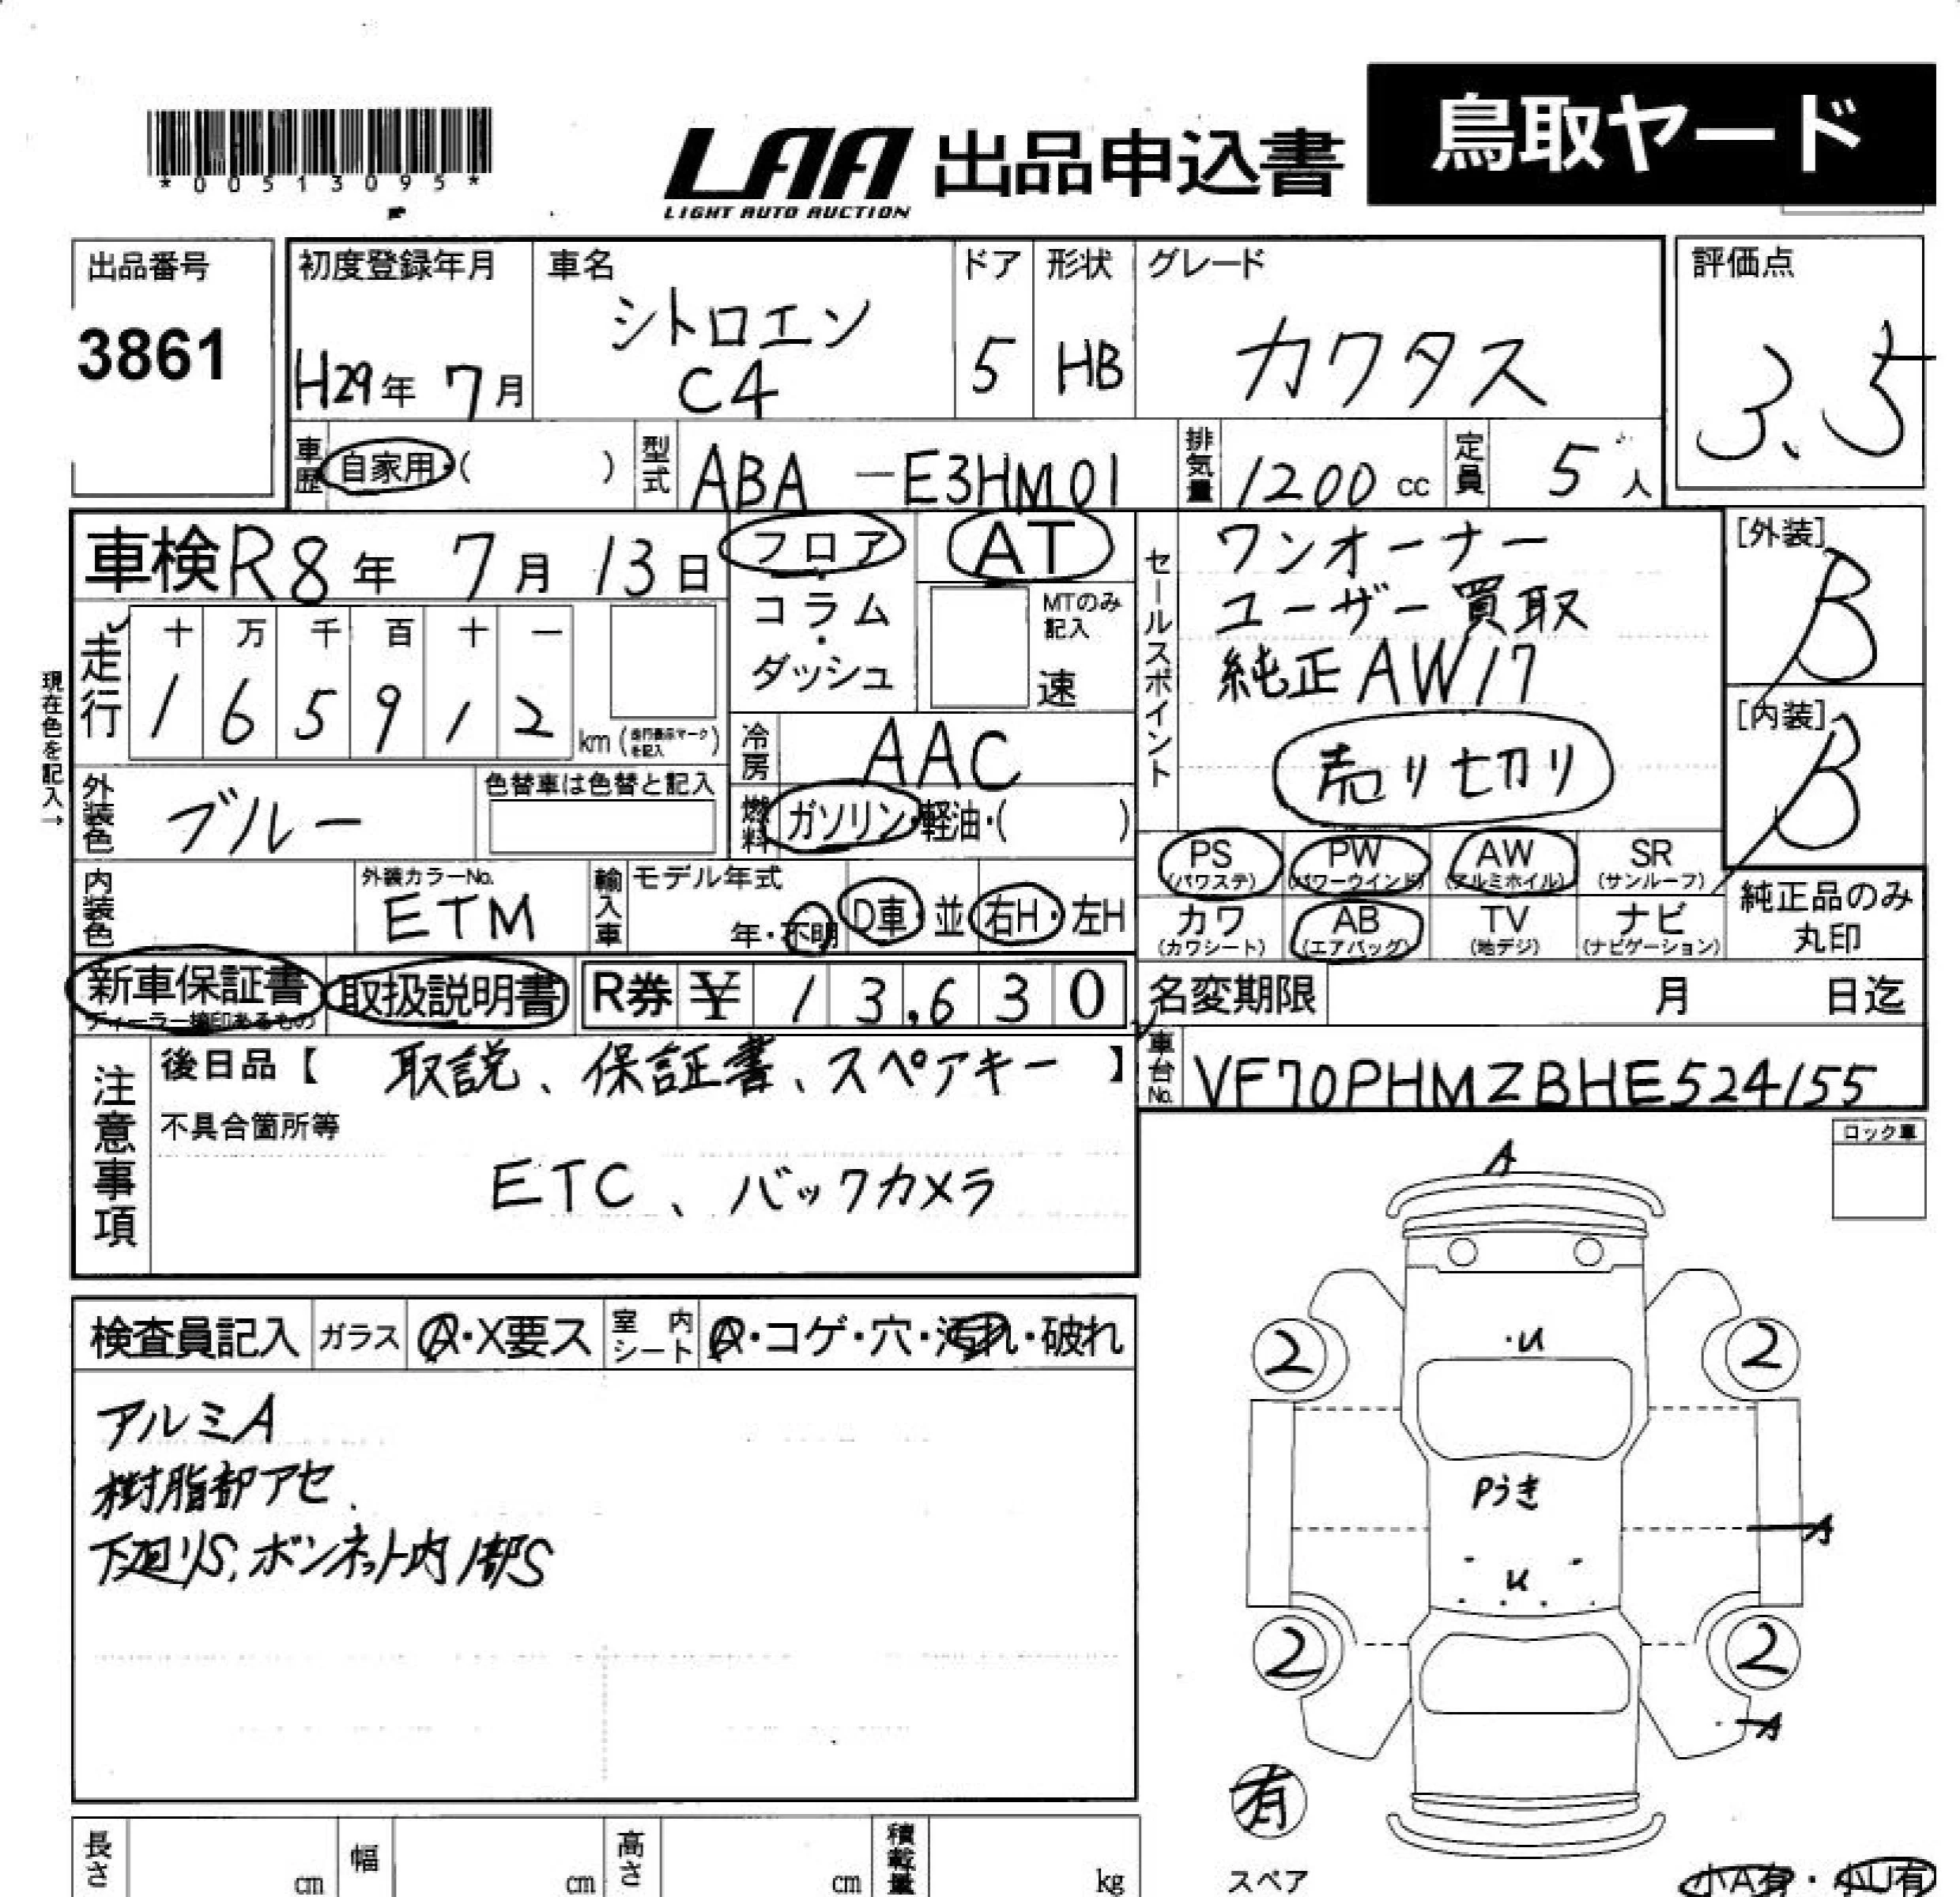 *00513095*
LAA 出品申込書 鳥取ヤード
LIGHT AUTO AUCTION
出品番号 初度登録年月 車名 ドア 形状 グレード 評価点
3861 H29年 7月 シトロエン C4 5 HB カクタス 3.5
車歴 自家用・( ) 型式 ABA-E3HM01 排気量 1200cc 定員 5人
車検 R8年 7月 13日 フロア・コラム・ダッシュ AT
MTのみ記入 速
セールスポイント
ワンオーナー
ユーザー買取
純正AW17
売り切り
[外装] B
[内装] B
現在色を記入→
走行 十 万 千 百 十 一
1 6 5 9 1 2 km
冷房 AAC
外装色 ブルー 色替車は色替と記入
燃料 ガソリン・軽油・( )
PS (パワステ) PW (パワーウインド) AW (アルミホイル) SR (サンルーフ)
カワ (カワシート) AB (エアバッグ) TV (地デジ) ナビ (ナビゲーション)
純正品のみ丸印
内装色 外装カラーNo. ETM 輸入車 モデル年式 年・不明 D車・並 右H・左H
新車保証書 取扱説明書 R券 ¥ 13,630
名変期限 月 日迄
車台No. VF70PHMZBHE524155
注意事項
後日品【 取説、保証書、スペアキー 】
不具合箇所等
ETC、バックカメラ
ロック車
検査員記入 ガラス A・X要ス 室内シート A・コゲ・穴・汚れ・破れ
アルミA
樹脂部アセ
下廻りS、ボンネット内1部S
A
・U
2 2
Pうき
A
U
2 2
A
有
スペア
小A有・小U有
長さ cm 幅 cm 高さ cm 積載量 kg